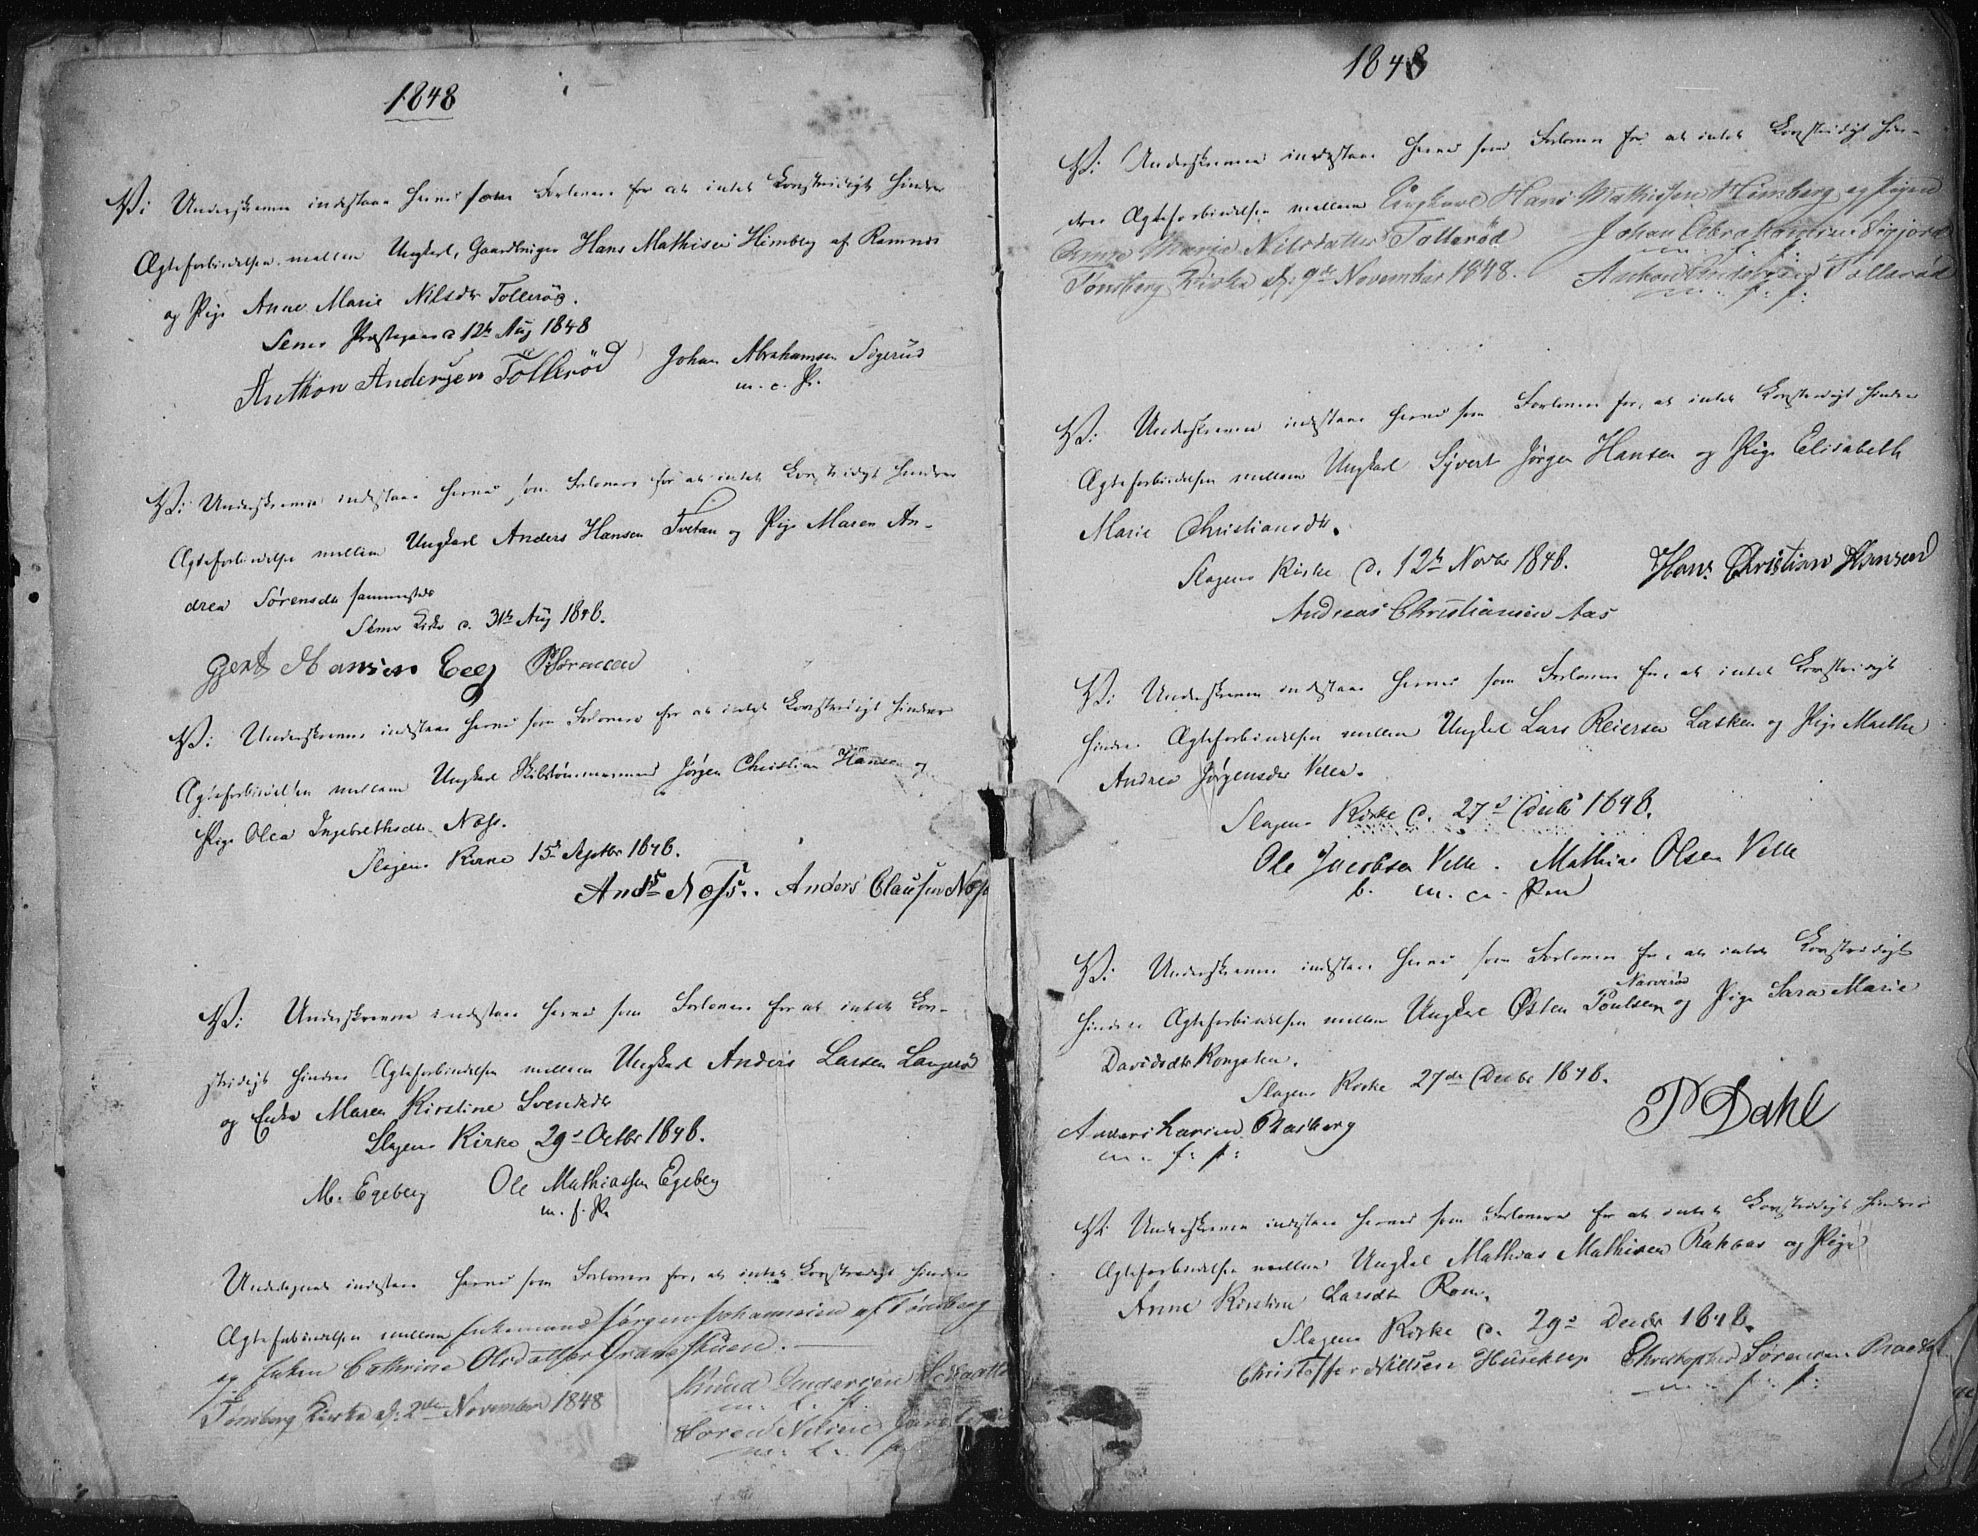 1848
Vi Underskrevne indestaae herved som Forlovere for at intet Lovstridigt hindrer
Ægteforbindelsen mellem Ungkarl, Gaardbruger Hans Mathisen Himberg af Ramnes
og Pige Anne Marie Nilsdr Tollerød.
Sems Præstegaard 12te Aug 1848
Anthon Andersen Tollerød Johan Abrahamsen Sigerud
m. p. P.
Vi Underskrevne indestaae herved som Forlovere for at intet Lovstridigt hindrer
Ægteforbindelse mellem Ungkarl Anders Hansen Tvetan og Pige Maren An-
drea Sørensdr sammesteds
Sems Kirke d. 31te Aug 1848.
Gjert Hansen Eeg Sørensen
Vi Underskrevne indestaae herved som Forlovere for at intet Lovstridigt hindrer
Ægteforbindelsen mellem Ungkarl Skibstømmermand Jørgen Christian Hansen og
Pige Olea Ingebrethsdr Næss.
Slagens Kirke 15de Septbr 1848.
Ands Næss. Anders Clausen Næss
Vi Underskrevne indestaae herved som Forlovere for at intet Lov-
stridigt hindrer Ægteforbindelsen mellem Ungkarl Anders Larsen
og Enke Maren Kirstine Svendsdr
Slagens Kirke 29de Octbr 1848.
M. Egeberg Ole Mathiassen Egeberg
m. f. P.
Undertegnede indestaae herved som Forlovere for, at intet Lovstridigt hindrer
Ægteforbindelsen mellem Enkemand Jørgen Johannesen af Tønsberg
og Enken Cathrine Olsdatter
Tønsberg Kirke d: 2den November 1848
Knud Andersen
Soren Nilsen
1848
Vi Underskrevne indestaae herved som Forlovere for at intet Lovstridigt hin-
drer Ægteforbindelsen mellem Ungkarl Hans Mathissen Himberg og Pigen
Anne Marie Nilsdatter Tollerød Johan Abrahamsen
Tønsberg Kirke d: 9de November 1848. Anthon Andersen Tollerød
m. f. p.
Vi Underskrevne indestaae herved som Forlovere for, at intet Lovstridigt hindrer
Ægteforbindelsen mellem Ungkarl Syvert Jørgen Hansen og Pige Elisabeth
Marie Christiansdr.
Slagens Kirke d. 12te Novbr 1848. Hans Christian Hansen
Andreas Christiansen Aas
Vi Underskrevne indestaae herved som Forlovere for, at intet Lovstridigt
hindrer Ægteforbindelsen mellem Ungkarl Lars Reiersen Lasken og Pige Marthe
Andrea Jørgensdr Velle.
Slagens Kirke d. 27de Decbr 1848.
Ole Jacobsen Velle. Mathias Olsen Velle
m. p. Pen
Vi Underskrevne indestaae herved som Forlovere for, at intet Lovstridigt
hindrer Ægteforbindelsen mellem Ungkarl Østen Poulsen Narverød og Pige Sara Marie
Davidsdr Kongsten.
Slagens Kirke 27de Decbr 1848.
P Dahl
Anders Larsen Basberg
m. f. p:
Vi Underskrevne indestaae herved som Forlovere for at intet Lovstridigt hindrer
Ægteforbindelsen mellem Ungkarl Mathias Mathisen Rakaas og Pige
Anne Kirstine Larsdr Rom.
Slagens Kirke d. 29de Decbr 1848.
Christoffer Nilsen Huseklep Christopher Sørensen
m. f. p: